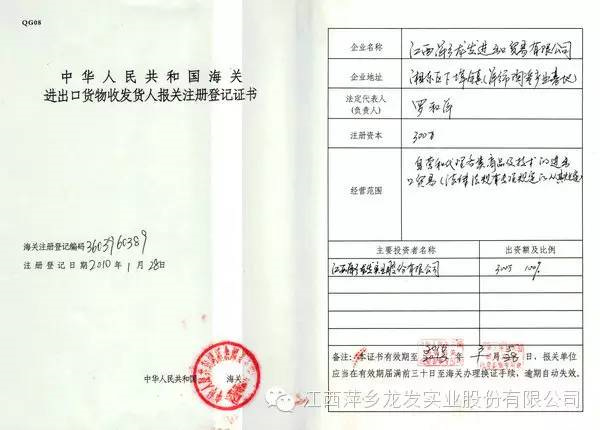 QG08
中华人民共和国海关
进出口货物收发货人报关注册登记证书
海关注册登记编码 3603960389
注册登记日期 2010 年 1 月 28日
中华人民共和国 海关
企业名称 江西萍乡龙发进出口贸易有限公司
企业地址 湘东区下埠镇(萍乡陶瓷产业基地)
法定代表人
(负责人)
注册资本 300万
经营范围
自营和代理各类商品及技术的进出
口贸易(法律法规有专项规定的从其规定)
主要投资者名称 出资额及比例
江西萍乡龙发实业股份有限公司 300万 100%
备注:本证书有效期至 年 月 日,报关单位
应当在有效期届满前三十日至海关办理换证手续,逾期自动失效。
江西萍乡龙发实业股份有限公司